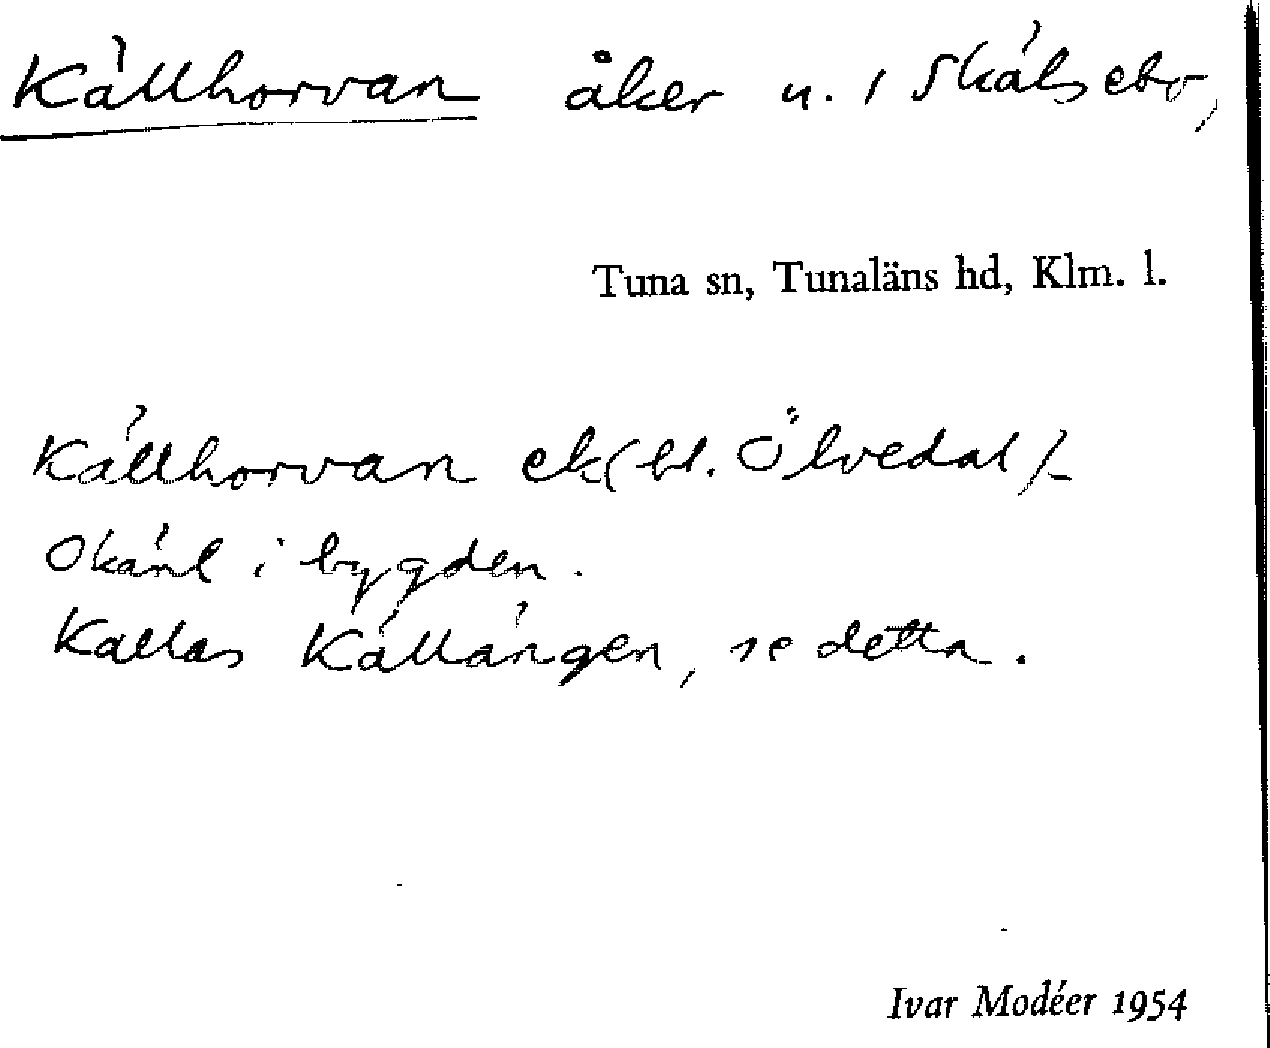 Källhorvan åker u. 1 Skälsebo,
Tuna sn, Tunaläns hd, Klm. l.
Källhorvan ek(bl. Ölvedal)–
Okänt i bygden.
Kallas Källängen, se detta.
Ivar Modéer 1954